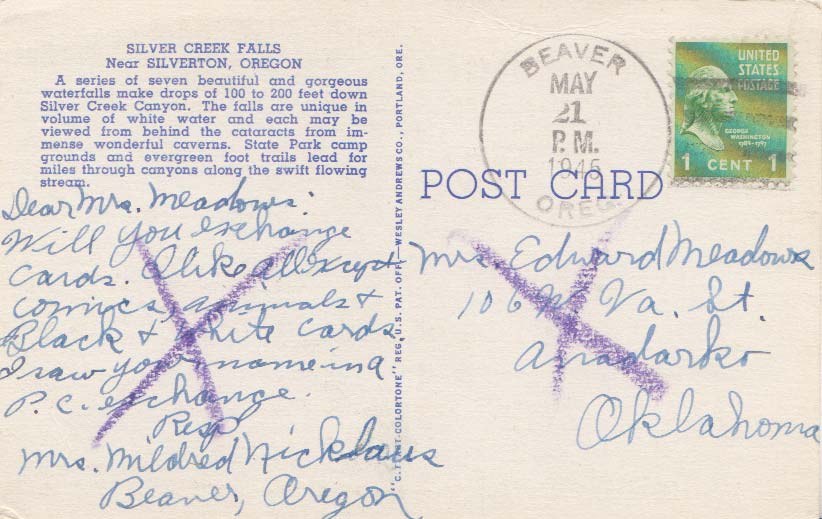 SILVER CREEK FALLS
Near SILVERTON, OREGON
A series of seven beautiful and gorgeous
waterfalls make drops of 100 to 200 feet down
Silver Creek Canyon. The falls are unique in
volume of white water and each may be
viewed from behind the cataracts from im-
mense wonderful caverns. State Park camp
grounds and evergreen foot trails lead for
miles through canyons along the swift flowing
stream.
Dear Mrs. Meadows.
Will you exchange
cards. I like all except
comics, animals &
Black & white cards
I saw your name in a
P. C. exchange.
Resp
Mrs. Mildred Nicklaus
Beaver, Oregon
"C.T. ART-COLORTONE" REG. U.S. PAT. OFF.—WESLEY ANDREWS CO., PORTLAND, ORE.
BEAVER
MAY
21
P.M.
1945
OREG.
UNITED
STATES
POSTAGE
GEORGE
WASHINGTON
1789-1797
1 CENT 1
POST CARD
Mrs. Edward Meadows
106 W Va. St.
Anadarko
Oklahoma